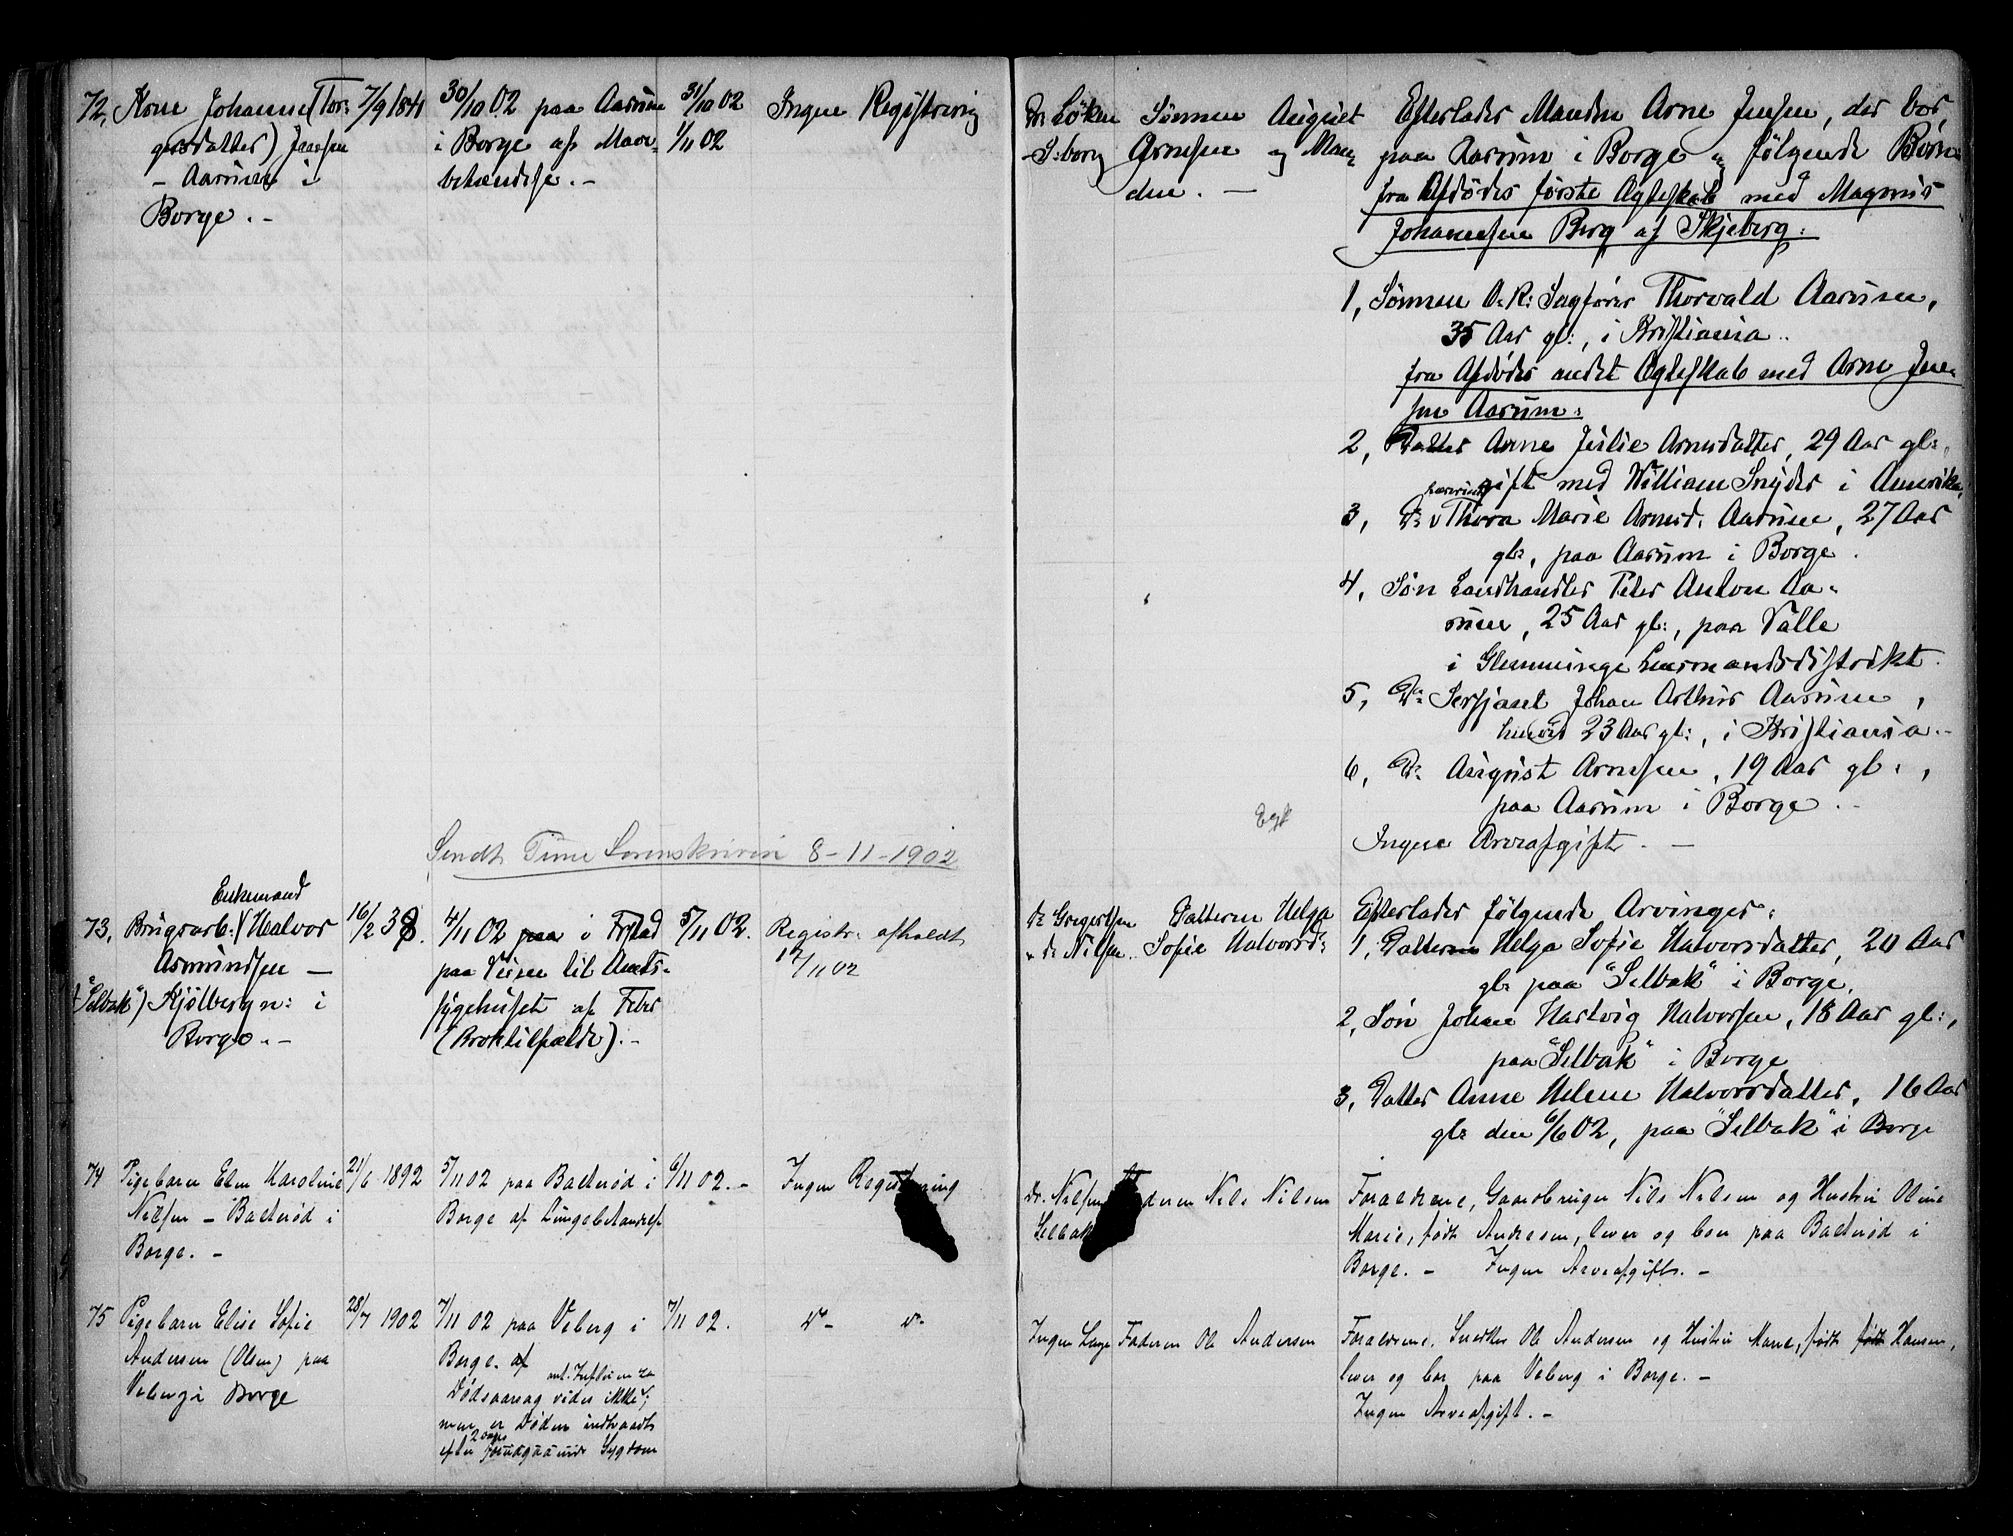 72, Kone Johanne (Tor- 7/9 1841 30/10 02 paa Aarum 31/10 02 Ingen Registrering
gersdatter) Jensen i Borge af Mave- 1/11 02
- Aarum i betændelse. -
Borge. -
Sendt Tune Sorenskriveri 8-11-1902
Enkemand
73, Brugsarb: (Halvor 16/2 38. 4/11 02 paa i F.stad 5/11 02. Registr: afholdt
Asmundsen - paa Veien til Amts- 17/11 02
"Selbak") Kjølbergn: i sygehuset af Feber
Borge. - (Broktilfælde). -
74 Pigebarn Elen Karoline 21/6 1892 5/11 02 paa Balterød i 6/11 02. - Ingen Registrering
Nilsen - Balterød i Borge af Lungebetændelse
Borge. -
75 Pigebarn Elise Sofie 28/7 1902 7/11 02 paa Veberg i 7/11 02. d° - d° -
Andersen (Olsen) paa Borge. af
Veberg i Borge ant. Influenza
Dødsaarsag vides ikke;
men er Døden indtraadt
2 dages
efter forudgaaende Sygdom
Dr. Løken Sønnen August Efterlader Manden Arne Jensen, der bor,
S:borg Arnesen og Man- paa Aarum i Borge og følgende Børn
den. - fra Afdødes første Ægteskab med Magnus
Johannesen Berg af Skjeberg:
1, Sønnen O.R: Sagfører Thorvald Aarum,
35 Aar gl:, i Kristiania..
fra Afdødes andet Ægteskab med Arne Jen-
sen Aarum:
2, Datter Anne Julie Arnesdatter, 29 Aar gl:,
gift med William Snyder i Amerika,
3, D° Thora Marie Arnesd: Aarum, 27 Aar
gl:, paa Aarum i Borge.
4, Søn Landhandler Peter Anton Aa-
rum, 25 Aar gl:, paa Valle
i Glemminge Lensmandsdistrikt.
5, D° Sersjant Johan Arthur Aarum,
23 Aar gl:, i Kristiania. -
6, D° August Arnesen, 19 Aar gl:,
paa Aarum i Borge. -
Ingen Arveafgift. -
Dr Gregertsen Datteren Helga Efterlader følgende Arvinger:
" dr Nilsen. Sofie Halvorsd: 1, Datteren Helga Sofie Halvorsdatter, 20 Aar
gl: paa "Selbak" i Borge.
2, Søn Johan Hartvig Halvorsen, 18 Aar gl:,
paa "Selbak" i Borge
3, Datter Anne Helene Halvorsdatter, 16 Aar
gl: den 6/6 02, paa "Selbak" i Borge
Dr. Nilsen Faderen Nils Nilsen Forældrene, Gaardbruger Nils Nilsen og Hustru Oline
Selbak Marie, født Andersen, lever og bor paa Balterød i
Borge. - Ingen Arveafgift. -
Ingen Læge Faderen Ole Andersen Forældrene, Snedker Ole Andersen og Hustru Marie, født født Hansen,
lever og bor paa Veberg i Borge. -
Ingen Arveafgift. -